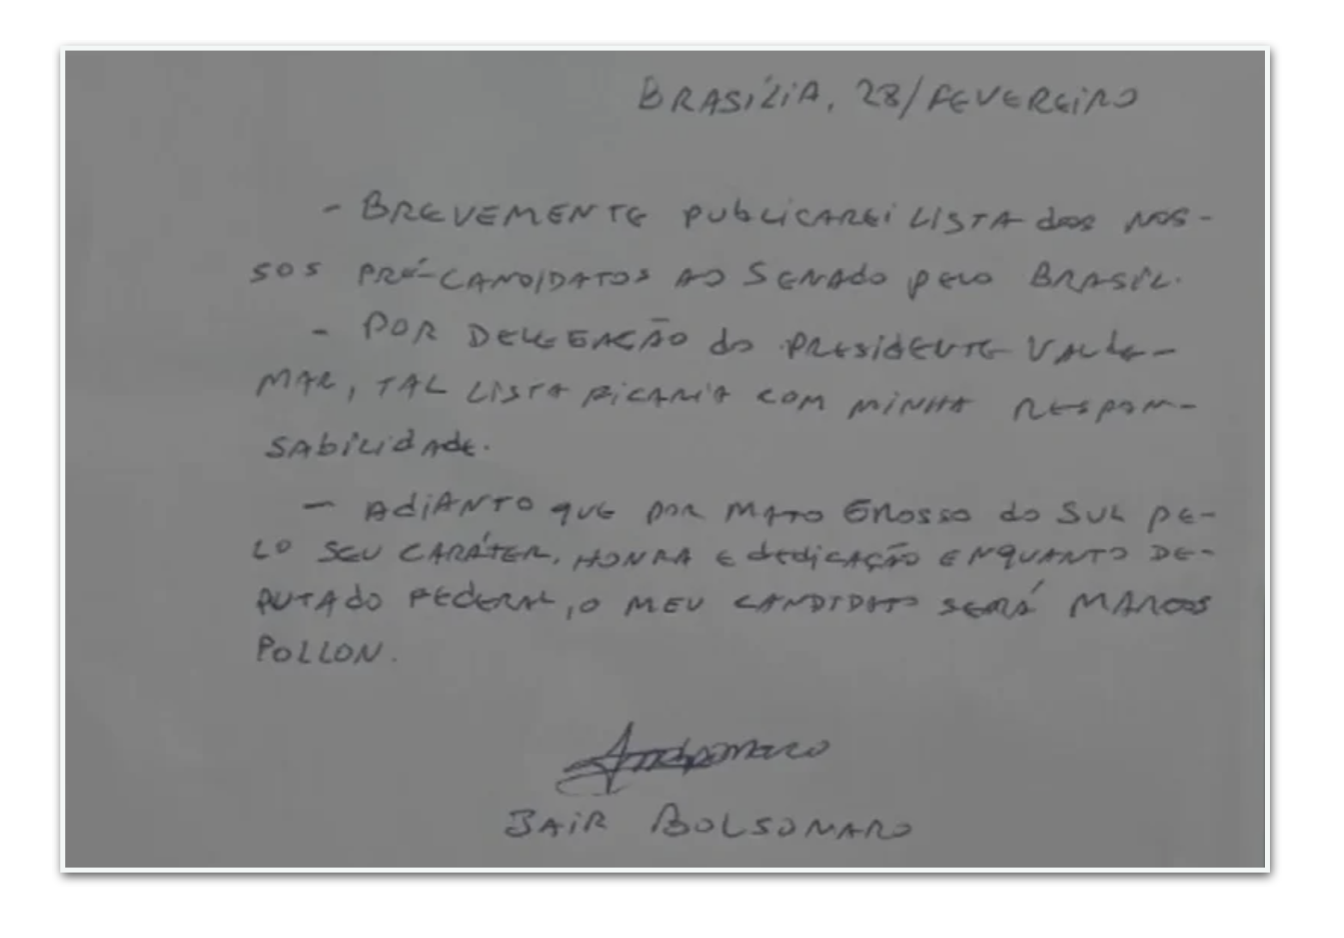 BRASÍLIA, 28/FEVEREIRO
- BREVEMENTE PUBLICAREI LISTA dos NOS-
SOS PRÉ-CANDIDATOS AO SENADO pelo BRASIL.
- POR DELEGAÇÃO do PRESIDENTE VALDE-
MAR, TAL LISTA FICARIA COM MINHA RESPON-
SABILIDADE.
- ADIANTO QUE POR MATO GROSSO do SUL PE-
LO SEU CARÁTER, HONRA E dedicAÇÃO ENQUANTO DE-
PUTADO FEDERAL, O MEU CANDIDATO SERÁ MARCOS
POLLON.
JAIR BOLSONARO